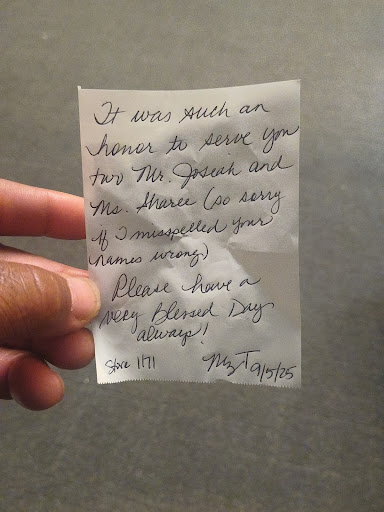 It was such an
honor to serve you
two Mr. Josiah and
Ms. Sharee (so sorry
if I misspelled your
names wrong)
Please have a
very Blessed Day
always!
Store 1171 Mz T 9/5/25